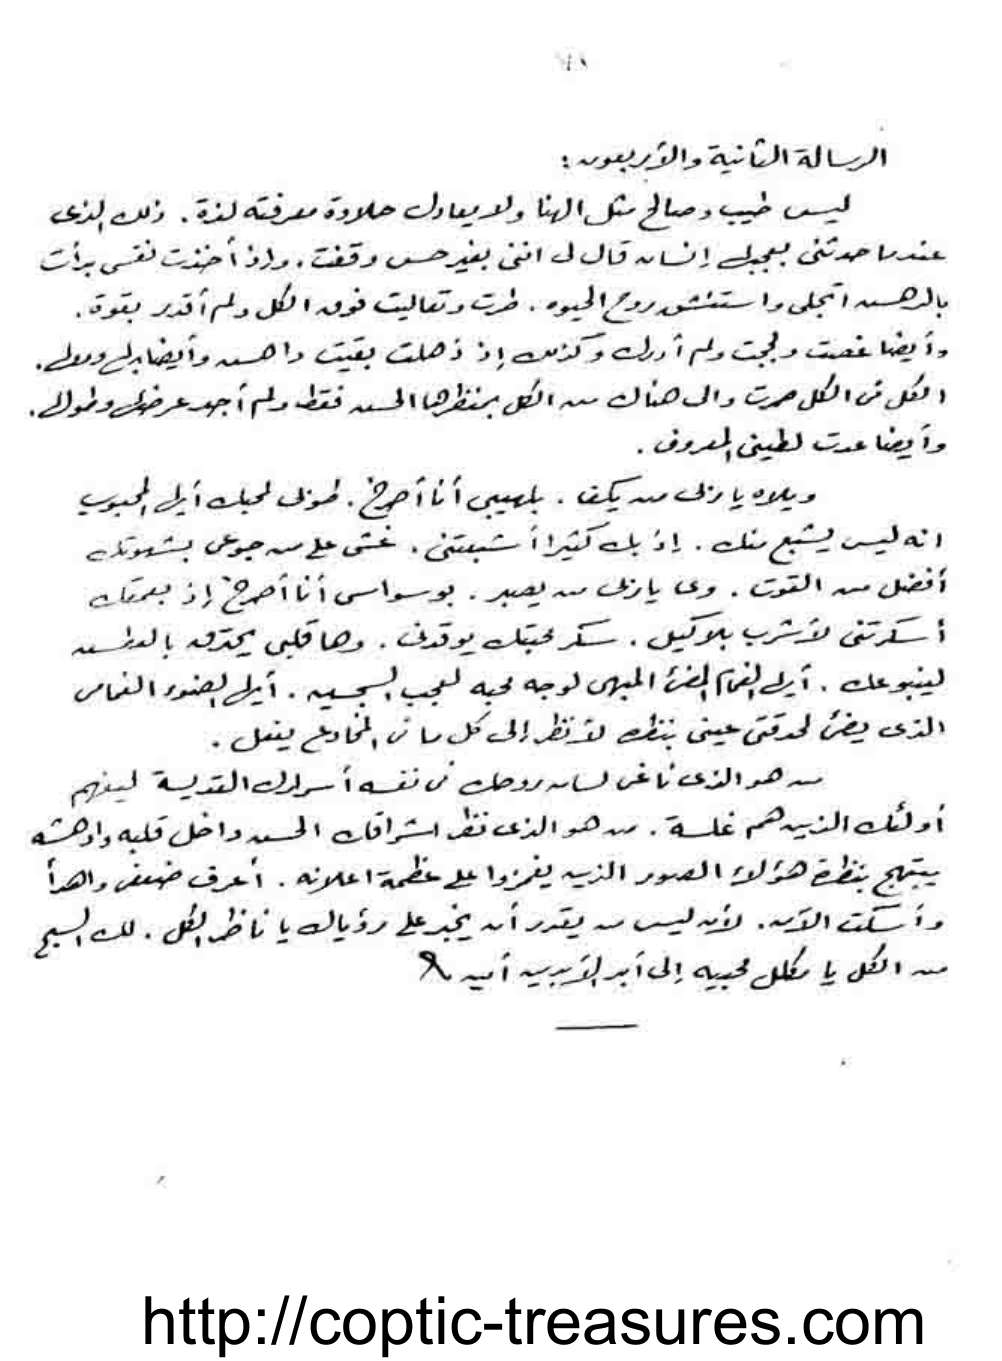 الرسالة الثانية والأربعون :
ليس طيب وصالح مثل الهنا ولا يعادل حلاوة معرفته لذة . ذلك الذى
عندما حدثنى بعجبك إنسان قال لى اننى بغير حس وقفت . واذ أخذت نفسى بدأت
أتجلى واستنشق روح الحيوه . طرت وتعاليت فوق الكل ولم أقدر بقوة .
وأيضا غصت ولججت ولم أدرك وكذلك إذ ذهلت بقيت داهس وأيضا
الكل فى الكل صرت والى هناك من الكل بمنظرها الحسن فقط ولم أجد
وأيضا عدت لطينى المعروف .
ويلاه يا ربى من يكف . بلهيبى أنا أصرخ . طوبى لمحبك أيها المحبوب
انه ليس يشبع منك . إذ بك كثيرا أشبعتنى . غشى على من جوعى بشهوتك
أفضل من القوت . يا ربى من يصبر . بوسواسى أنا أصرخ إذ
أسكرتنى لأشرب بلا كيل . سكر محبتك يوقدنى . وها قلبى يحترق بالعطش
لينبوعك . أيها الغمام المضئ المبهى لوجه محبه لعجب السجس . أيها الضوء الغماص
الذى يضئ لحدقتى عينى بنظره لأنظر إلى كل ما فى المخادع يفعل .
من هو الذى ناغى لسان روحك فى نفسه أسرارك القديسة ليفهم
أولئك الذين هم غلسة . من هو الذى نظر اشراقك الحسن داخل قلبه وادهشه
يبتهج بنظرة هؤلاء الصور الذين يغمزوا على عظمة اعلانه . أعرف ضعفى واهدأ
وأسكت الآن . لأن ليس من يقدر أن يخبر على رؤياك يا ناظر الكل . لك السبح
من الكل يا مكلل محبيه إلى أبد الآبدين أمين
http://coptic-treasures.com